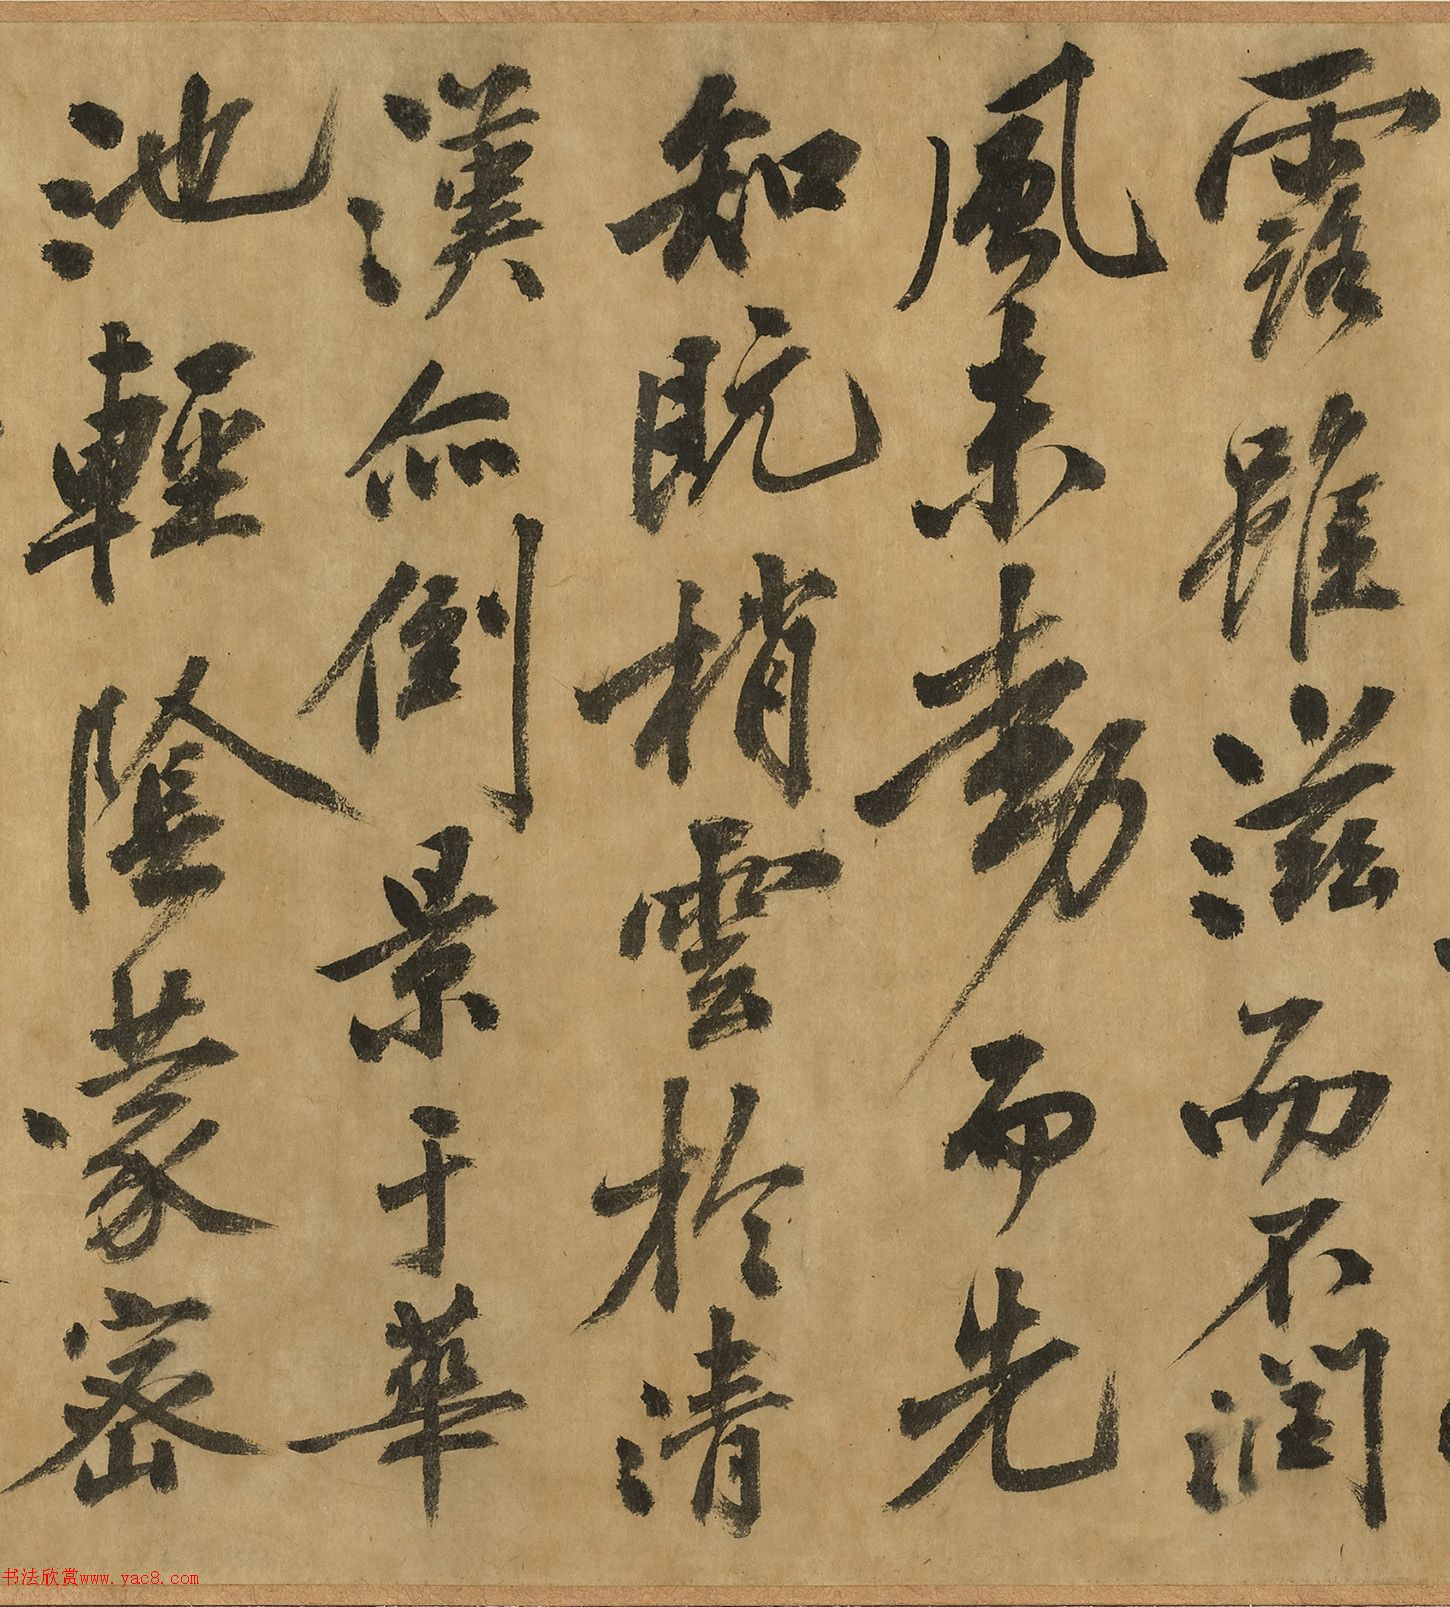 露雖滋而不潤
風未動而先
知既梢雲於清
漢亦倒景于華
池輕陰蒙密
书法欣赏www.yac8.com